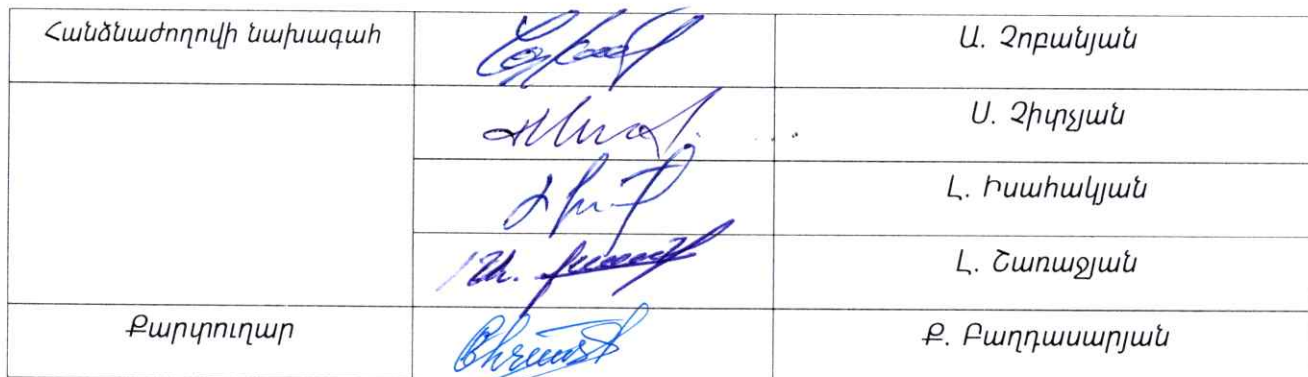 Հանձնաժողովի նախագահ Ա. Չոբանյան
Ս. Չիտչյան
Լ. Իսահակյան
Լ. Շառաջյան
Քարտուղար Ք. Բաղդասարյան